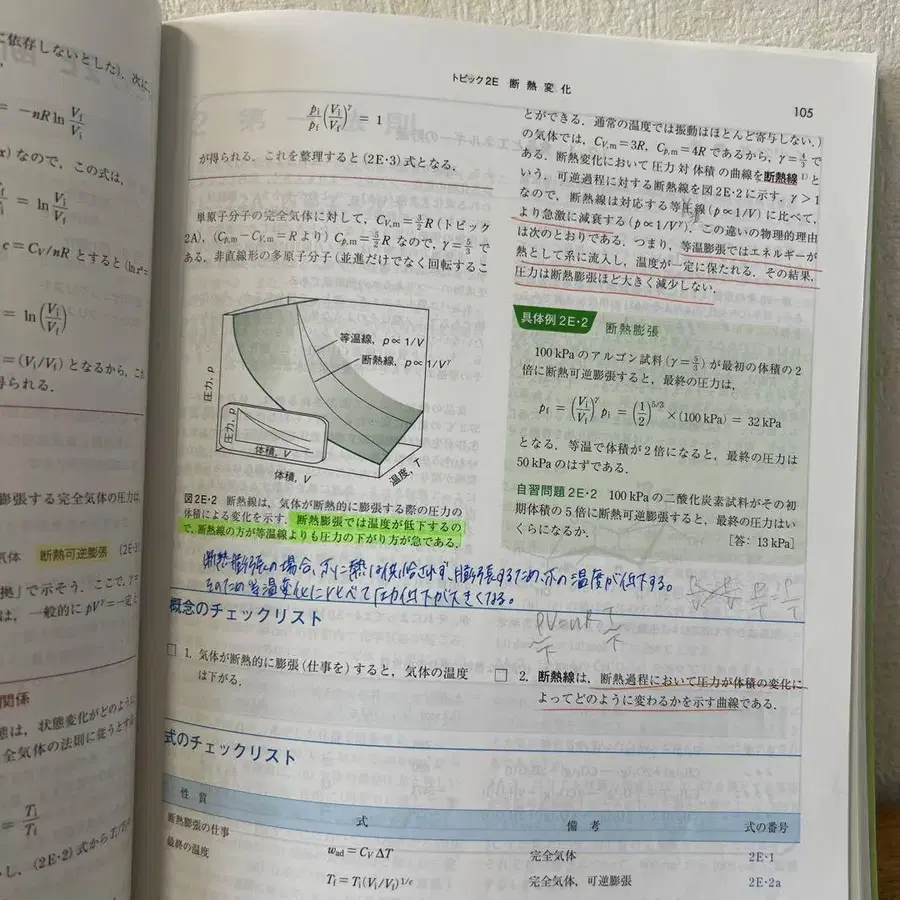 に依存しないとした). 次に,
= −nR ln Vf/Vi
なので, この式は,
= ln Vf/Vi
c = CV/nR とすると
= ln(Vi/Vf)
= (Vi/Vf) となるから, これ
得られる.
膨張する完全気体の圧力は
気体 断熱可逆膨張
」で示そう. ここで,
は, 一般的に pV^γ=一定
関係
態は, 状態変化がどのように
全気体の法則に従うとする
= Ti/Tf
(2E·2) 式から
トピック2E 断熱変化
105
pi/pf (Vi/Vf)^γ = 1
が得られる. これを整理すると (2E·3) 式となる.
単原子分子の完全気体に対して, CV,m = 3/2 R (トピック
2A), (Cp,m − CV,m = R より) Cp,m = 5/2 R なので, γ = 5/3 で
ある. 非直線形の多原子分子 (並進だけでなく回転するこ
等温線, p ∝ 1/V
断熱線, p ∝ 1/V^γ
圧力, p
圧力, p
体積, V
体積, V
温度, T
図2E·2 断熱線は, 気体が断熱的に膨張する際の圧力の
体積による変化を示す. 断熱膨張では温度が低下するの
で, 断熱線の方が等温線よりも圧力の下がり方が急である.
とができる. 通常の温度では振動はほとんど寄与しない.)
の気体では, CV,m = 3R, Cp,m = 4R であるから, γ = 4/3 で
ある. 断熱変化において圧力対体積の曲線を断熱線1) と
いう. 可逆過程に対する断熱線を図2E·2に示す. γ > 1
なので, 断熱線は対応する等圧線 (p ∝ 1/V) に比べて,
より急激に減衰する (p ∝ 1/V^γ). この違いの物理的理由
は次のとおりである. つまり, 等温膨張ではエネルギーが
熱として系に流入し, 温度が一定に保たれる. その結果,
圧力は断熱膨張ほど大きく減少しない.
具体例 2E·2 断熱膨張
100 kPa のアルゴン試料 (γ = 5/3) が最初の体積の2
倍に断熱可逆膨張すると, 最終の圧力は,
pf = (Vi/Vf)^γ pi = (1/2)^5/3 × (100 kPa) = 32 kPa
となる. 等温で体積が2倍になると, 最終の圧力は
50 kPa のはずである.
自習問題 2E·2 100 kPa の二酸化炭素試料がその初
期体積の5倍に断熱可逆膨張すると, 最終の圧力はい
くらになるか. [答: 13 kPa]
断熱膨張の場合、系に熱は供給されず、膨張するため、系の温度が低下する。
そのため等温変化に比べて圧力低下が大きくなる。
概念のチェックリスト
□ 1. 気体が断熱的に膨張 (仕事を) すると, 気体の温度
は下がる.
□ 2. 断熱線は, 断熱過程において圧力が体積の変化に
よってどのように変わるかを示す曲線である.
式のチェックリスト
性質 式 備考 式の番号
断熱膨張の仕事 wad = CV ΔT 完全気体 2E·1
最終の温度 Tf = Ti(Vi/Vf)^1/c 完全気体, 可逆膨張 2E·2a